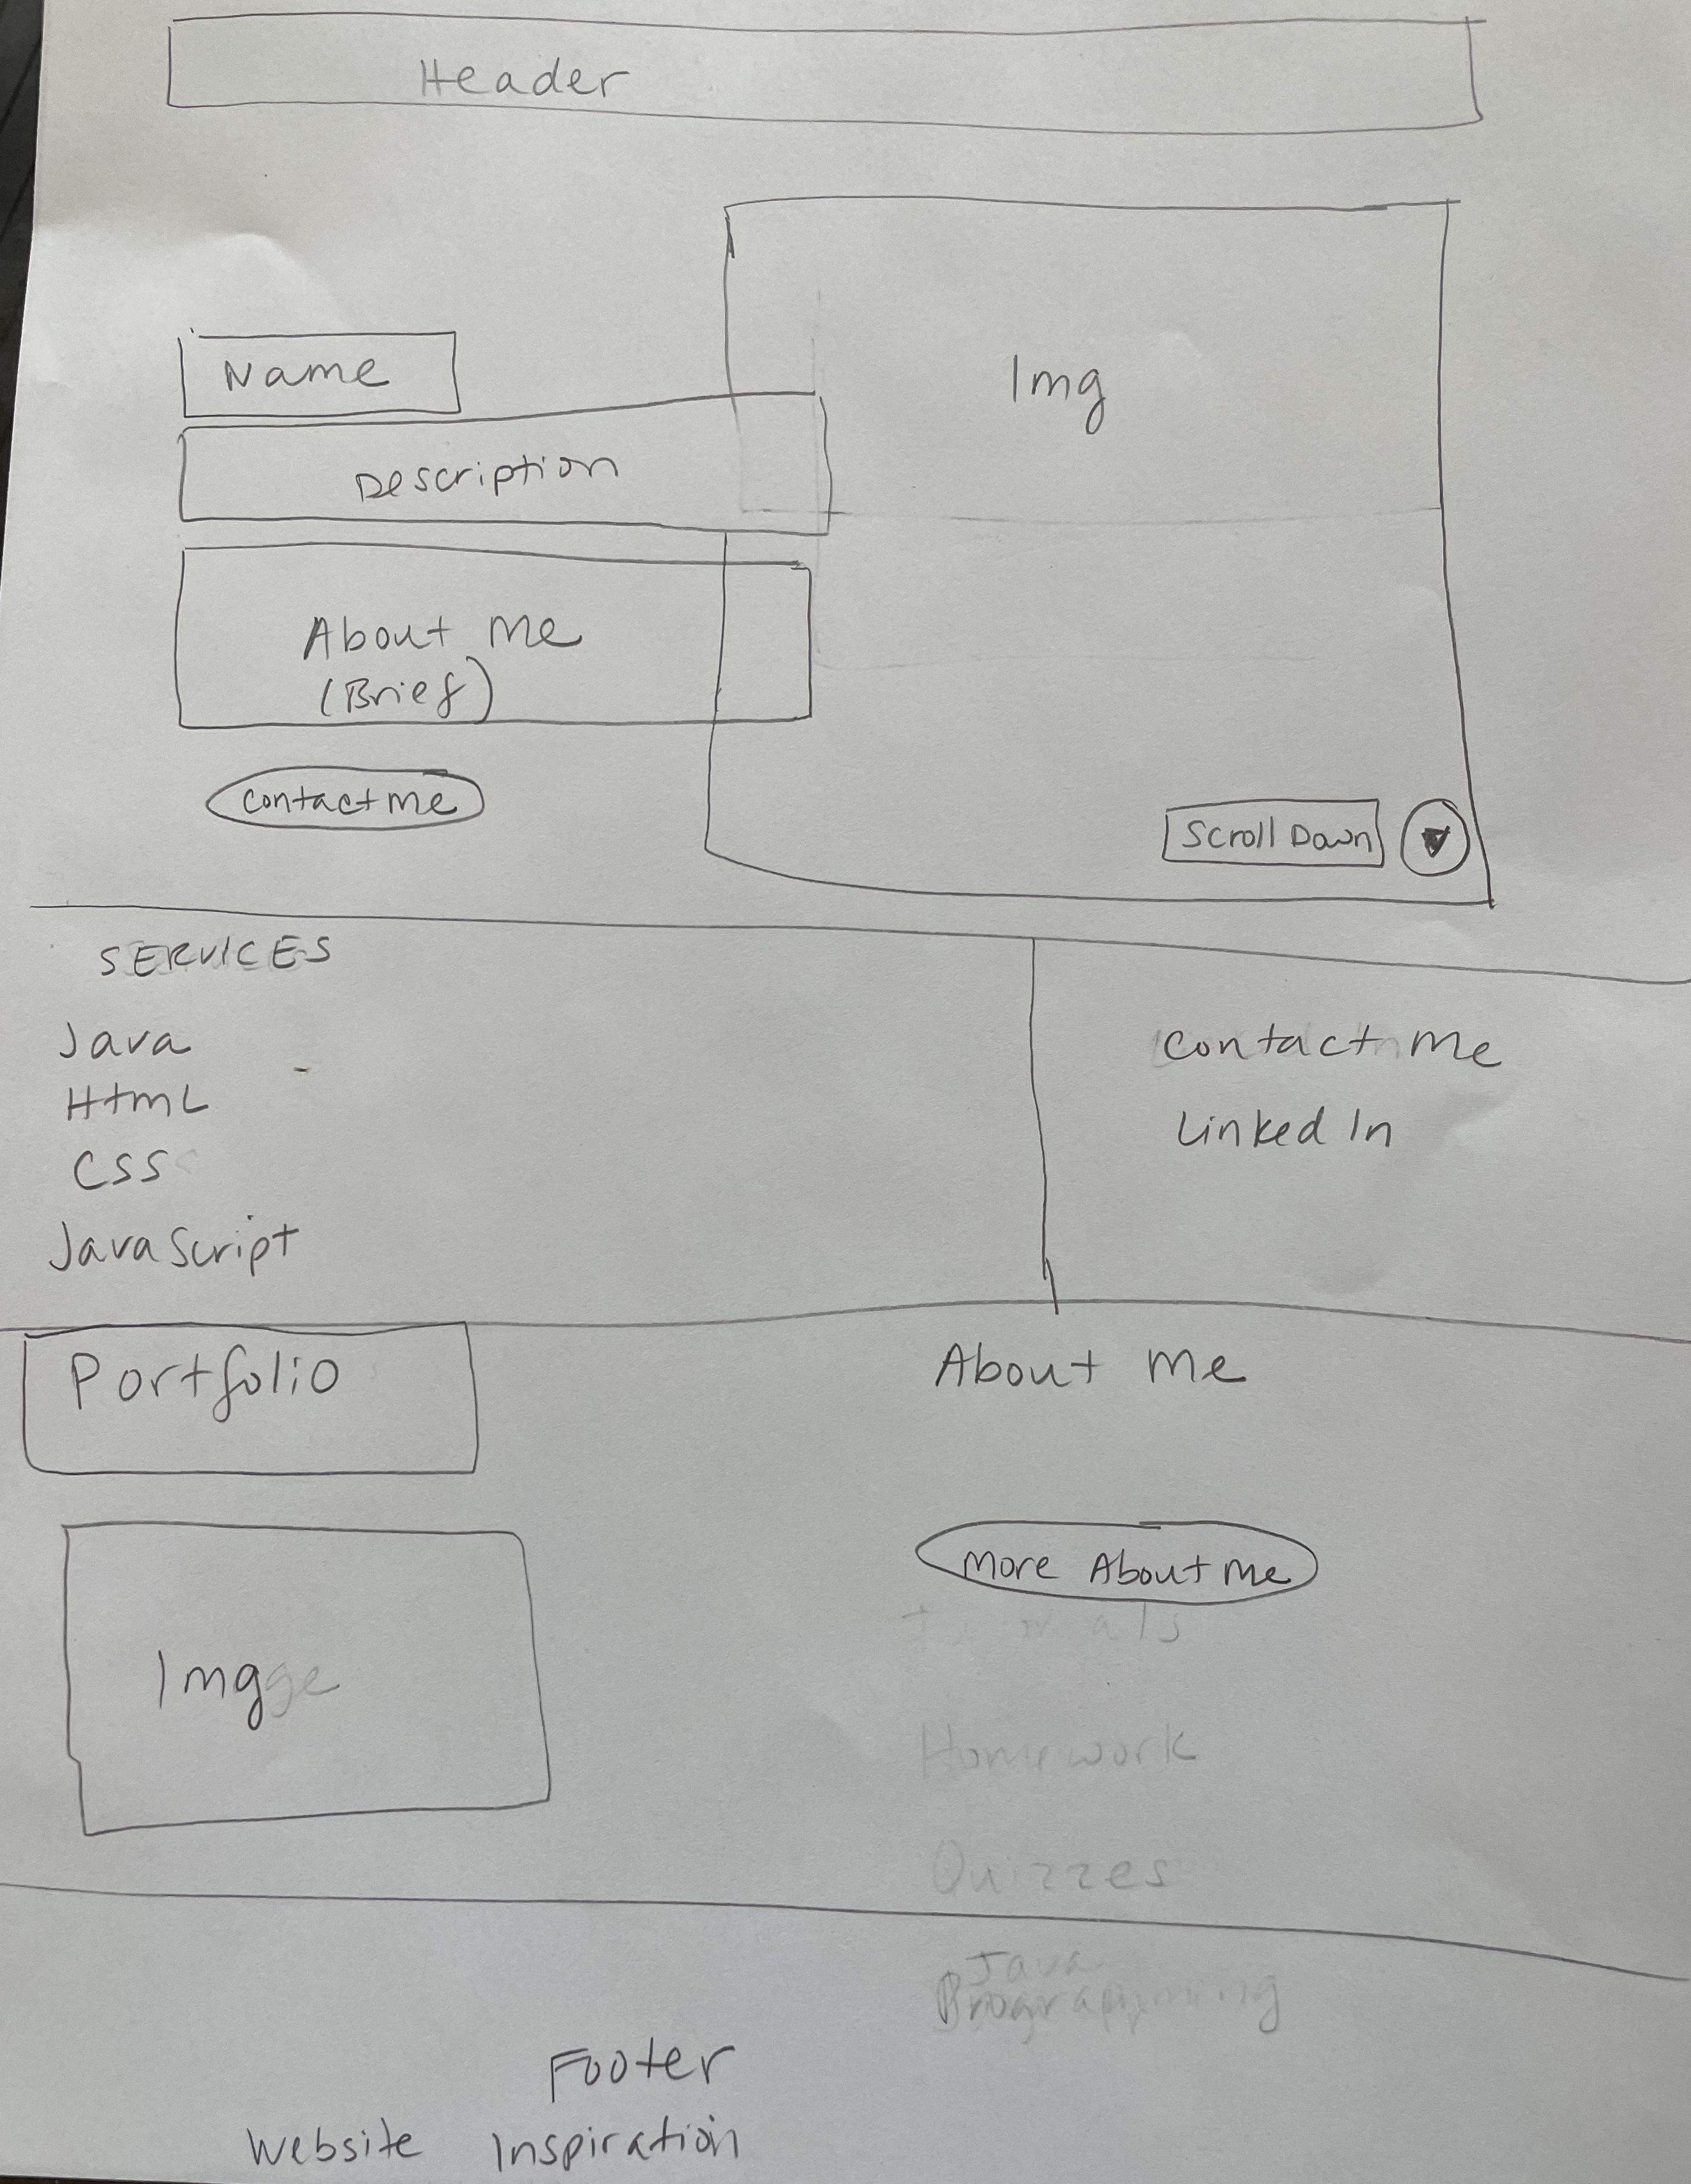 Header
Name
Img
Description
About Me
(Brief)
Contact Me
Scroll Down
SERVICES
Java
HtmL
CSS
JavaScript
Contact Me
Linked In
Portfolio
About Me
More About Me
Imgge
Homework
Quizzes
Java
Programming
Footer
Website Inspiration